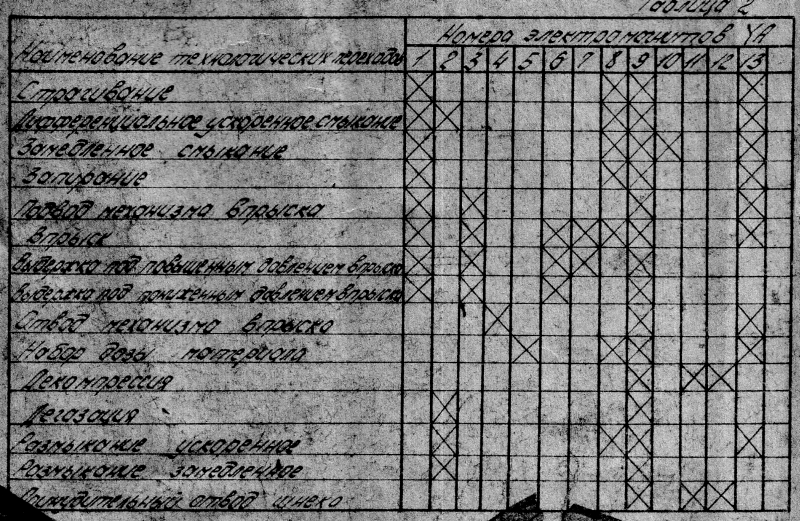 Таблица 2
Номера электромагнитов YA
Наименование технологических переходов 1 2 3 4 5 6 7 8 9 10 11 12 13
Страгивание X X X X
Дифференциальное ускоренное смыкание X X X X X
Замедленное смыкание X X X X X
Запирание X X X X
Подвод механизма впрыска X X X X
Впрыск X X X X X X X
Выдержка под повышенным давлением впрыска X X X X X
Выдержка под пониженным давлением впрыска X X X X
Отвод механизма впрыска X X X
Набор дозы материала X X X X
Декомпрессия X X X
Дегазация X X
Размыкание ускоренное X X X X
Размыкание замедленное X X
Принудительный отвод шнека X X X